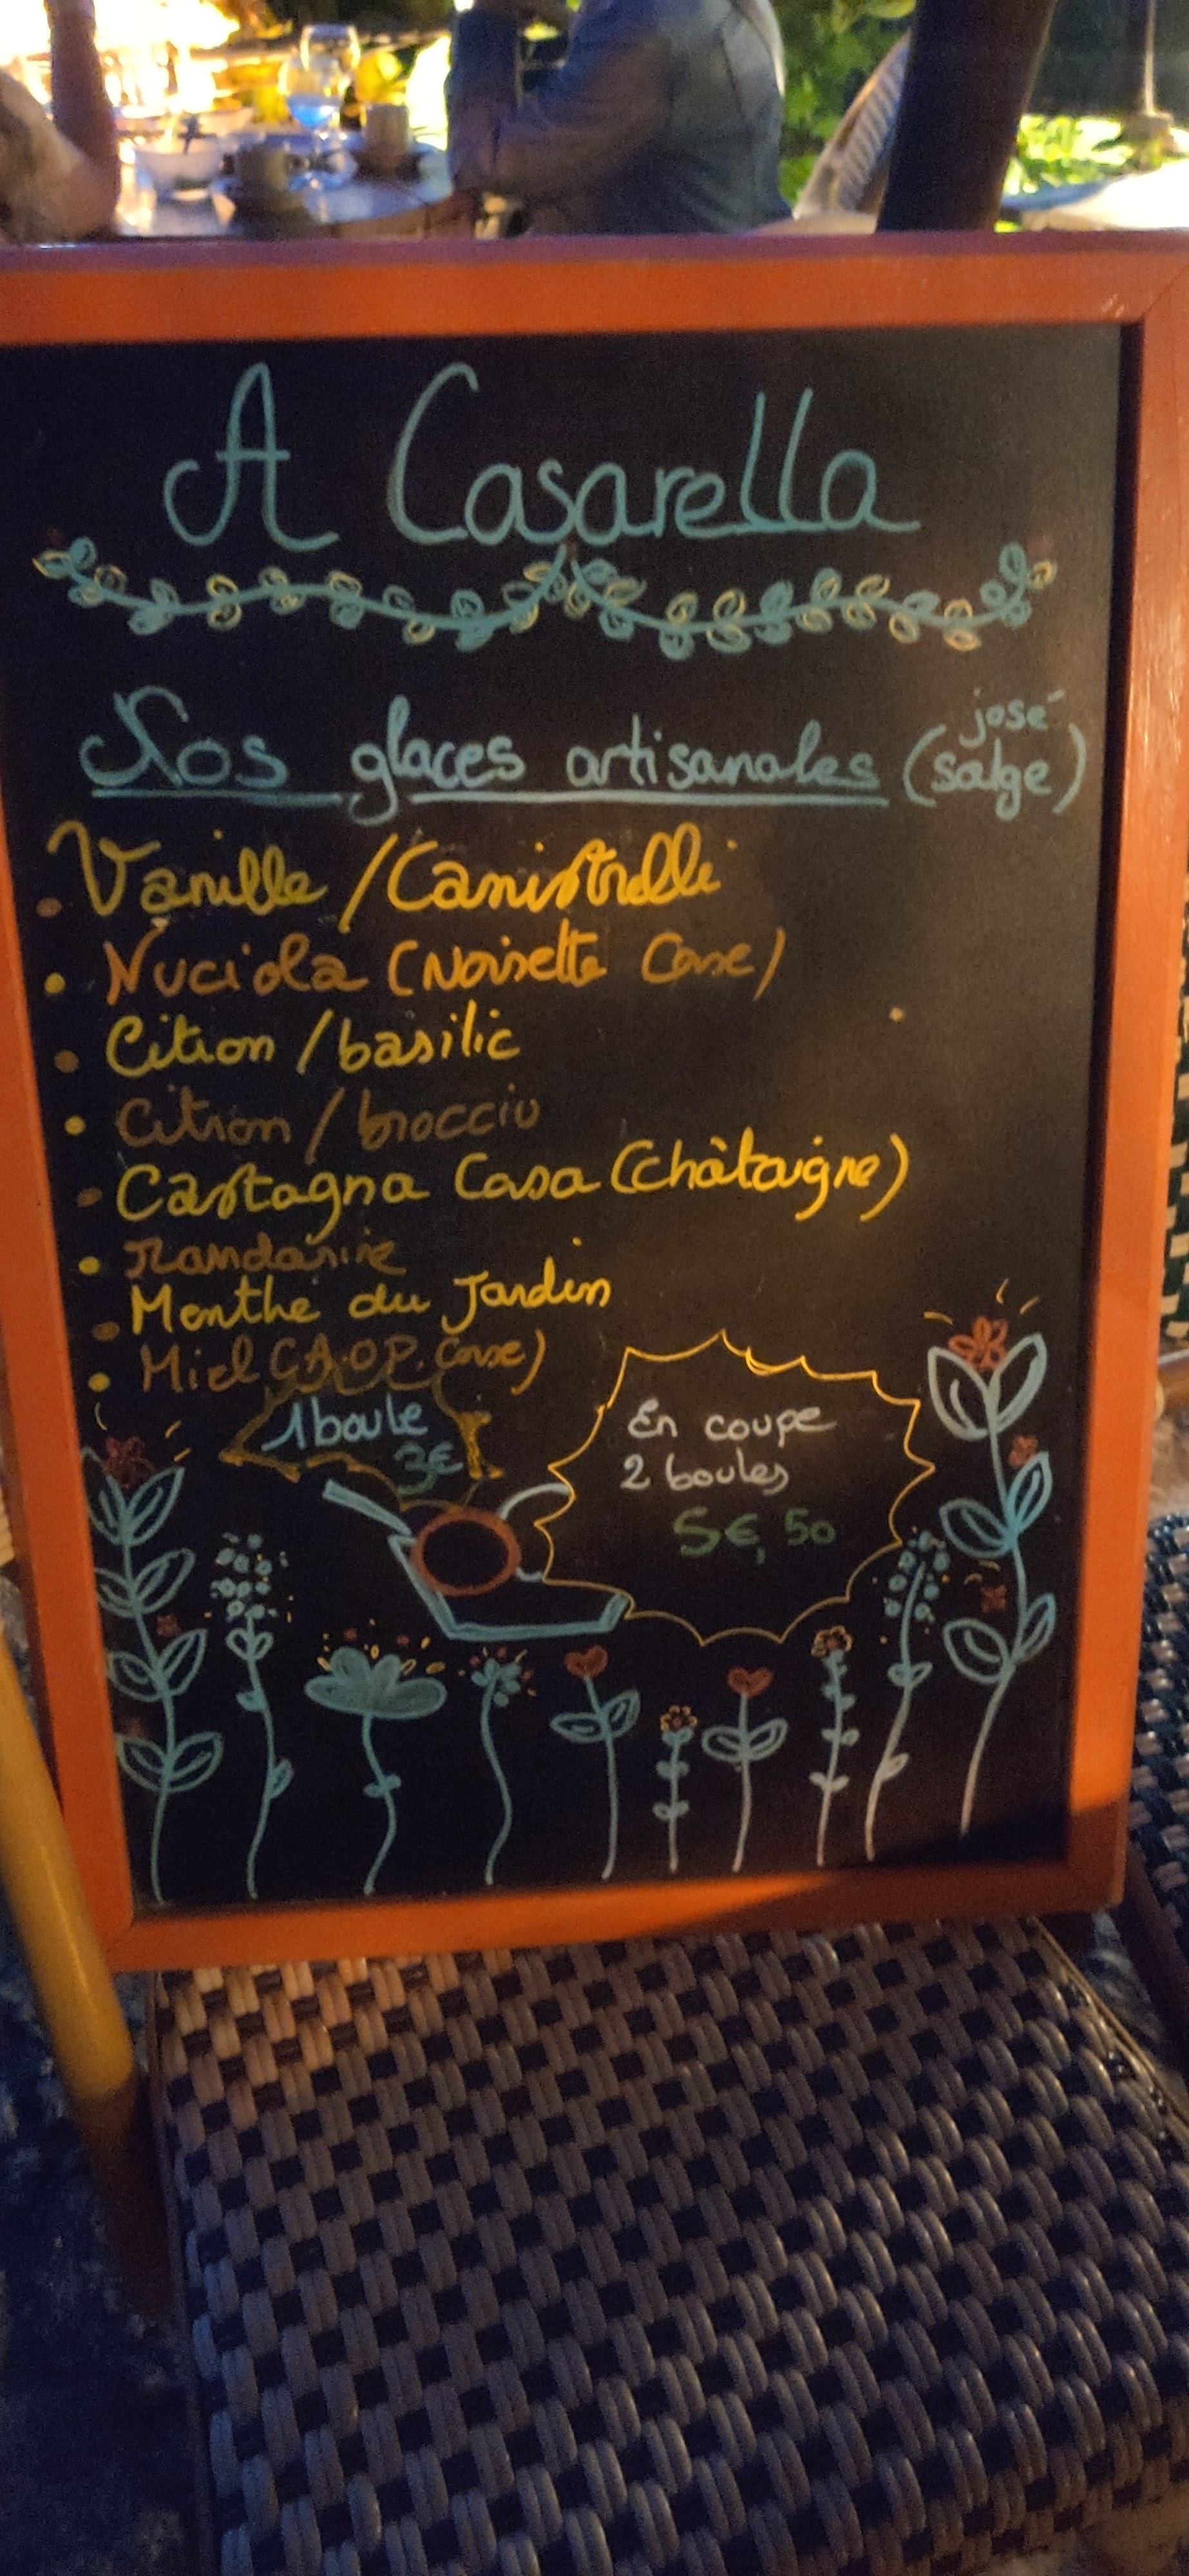 A Casarella
Nos glaces artisanales (josé salge)
Vanille / Canistrelli
Nuciola (Noisette Corse)
Citron / basilic
Citron / brocciu
Castagna Casa (châtaigne)
Mandarine
Menthe du Jardin
Miel (A.O.P. Corse)
1 boule
3€
En coupe
2 boules
5€,50